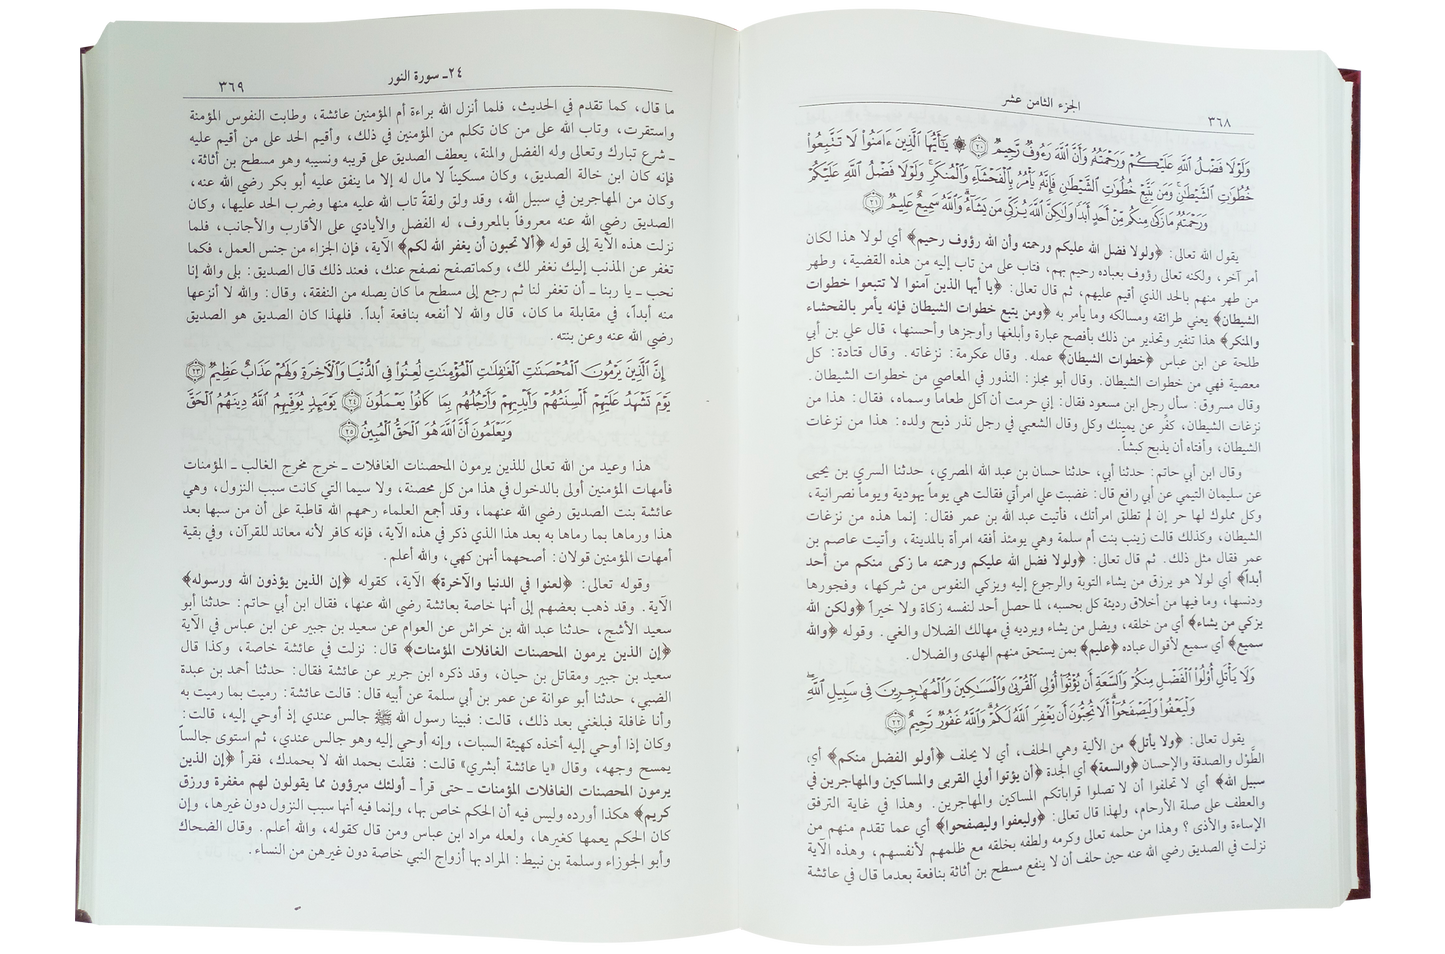 الجزء الثامن عشر
٣٦٨
وَلَوْلَا فَضْلُ اللَّهِ عَلَيْكُمْ وَرَحْمَتُهُ وَأَنَّ اللَّهَ رَءُوفٌ رَّحِيمٌ ٢٠ ۞ يَٰٓأَيُّهَا الَّذِينَ ءَامَنُوا لَا تَتَّبِعُوا
خُطُوَٰتِ الشَّيْطَٰنِ وَمَن يَتَّبِعْ خُطُوَٰتِ الشَّيْطَٰنِ فَإِنَّهُ يَأْمُرُ بِالْفَحْشَاءِ وَالْمُنكَرِ وَلَوْلَا فَضْلُ اللَّهِ عَلَيْكُمْ
وَرَحْمَتُهُ مَا زَكَىٰ مِنكُم مِّنْ أَحَدٍ أَبَدًا وَلَٰكِنَّ اللَّهَ يُزَكِّي مَن يَشَاءُ وَاللَّهُ سَمِيعٌ عَلِيمٌ ٢١
يقول الله تعالى: ﴿ولولا فضل الله عليكم ورحمته وأن الله رؤوف رحيم﴾ أي لولا هذا لكان
أمر آخر، ولكنه تعالى رؤوف بعباده رحيم بهم، فتاب على من تاب إليه من هذه القضية، وطهر
من طهر منهم بالحد الذي أقيم عليهم، ثم قال تعالى: ﴿يا أيها الذين آمنوا لا تتبعوا خطوات
الشيطان﴾ يعني طرائقه ومسالكه وما يأمر به ﴿ومن يتبع خطوات الشيطان فإنه يأمر بالفحشاء
والمنكر﴾ هذا تنفير وتحذير من ذلك بأفصح عبارة وأبلغها وأوجزها وأحسنها، قال علي بن أبي
طلحة عن ابن عباس ﴿خطوات الشيطان﴾ عمله. وقال عكرمة: نزغاته. وقال قتادة: كل
معصية فهي من خطوات الشيطان. وقال أبو مجلز: النذور في المعاصي من خطوات الشيطان.
وقال مسروق: سأل رجل ابن مسعود فقال: إني حرمت أن آكل طعاماً وسماه، فقال: هذا من
نزغات الشيطان، كفّر عن يمينك وكل وقال الشعبي في رجل نذر ذبح ولده: هذا من نزغات
الشيطان، وأفتاه أن يذبح كبشاً.
وقال ابن أبي حاتم: حدثنا أبي، حدثنا حسان بن عبد الله المصري، حدثنا السري بن يحيى
عن سليمان التيمي عن أبي رافع قال: غضبت علي امرأتي فقالت هي يوماً يهودية ويوماً نصرانية،
وكل مملوك لها حر إن لم تطلق امرأتك، فأتيت عبد الله بن عمر فقال: إنما هذه من نزغات
الشيطان، وكذلك قالت زينب بنت أم سلمة وهي يومئذ أفقه امرأة بالمدينة، وأتيت عاصم بن
عمر فقال مثل ذلك. ثم قال تعالى: ﴿ولولا فضل الله عليكم ورحمته ما زكى منكم من أحد
أبداً﴾ أي لولا هو يرزق من يشاء التوبة والرجوع إليه ويزكي النفوس من شركها، وفجورها
ودنسها، وما فيها من أخلاق رديئة كل بحسبه، لما حصل أحد لنفسه زكاة ولا خيراً ﴿ولكن الله
يزكي من يشاء﴾ أي من خلقه، ويضل من يشاء ويرديه في مهالك الضلال والغي. وقوله ﴿والله
سميع﴾ أي سميع لأقوال عباده ﴿عليم﴾ بمن يستحق منهم الهدى والضلال.
وَلَا يَأْتَلِ أُو۟لُوا الْفَضْلِ مِنكُمْ وَالسَّعَةِ أَن يُؤْتُوا أُو۟لِي الْقُرْبَىٰ وَالْمَسَٰكِينَ وَالْمُهَٰجِرِينَ فِي سَبِيلِ اللَّهِ
وَلْيَعْفُوا وَلْيَصْفَحُوا أَلَا تُحِبُّونَ أَن يَغْفِرَ اللَّهُ لَكُمْ وَاللَّهُ غَفُورٌ رَّحِيمٌ ٢٢
يقول تعالى: ﴿ولا يأتل﴾ من الألية وهي الحلف، أي لا يحلف ﴿أولو الفضل منكم﴾ أي
الطَّوْل والصدقة والإحسان ﴿والسعة﴾ أي الجدة ﴿أن يؤتوا أولي القربى والمساكين والمهاجرين في
سبيل الله﴾ أي لا تحلفوا أن لا تصلوا قراباتكم المساكين والمهاجرين. وهذا في غاية الترفق
والعطف على صلة الأرحام، ولهذا قال تعالى: ﴿وليعفوا وليصفحوا﴾ أي عما تقدم منهم من
الإساءة والأذى؟ وهذا من حلمه تعالى وكرمه ولطفه بخلقه مع ظلمهم لأنفسهم، وهذه الآية
نزلت في الصديق رضي الله عنه حين حلف أن لا ينفع مسطح بن أثاثة بنافعة بعدما قال في عائشة
٢٤ـ سورة النور
٣٦٩
ما قال، كما تقدم في الحديث، فلما أنزل الله براءة أم المؤمنين عائشة، وطابت النفوس المؤمنة
واستقرت، وتاب الله على من كان تكلم من المؤمنين في ذلك، وأقيم الحد على من أقيم عليه
ـ شرع تبارك وتعالى وله الفضل والمنة، يعطف الصديق على قريبه ونسيبه وهو مسطح بن أثاثة،
فإنه كان ابن خالة الصديق، وكان مسكيناً لا مال له إلا ما ينفق عليه أبو بكر رضي الله عنه،
وكان من المهاجرين في سبيل الله، وقد ولق ولقةً تاب الله عليه منها وضرب الحد عليها، وكان
الصديق رضي الله عنه معروفاً بالمعروف، له الفضل والأيادي على الأقارب والأجانب، فلما
نزلت هذه الآية إلى قوله ﴿ألا تحبون أن يغفر الله لكم﴾ الآية، فإن الجزاء من جنس العمل، فكما
تغفر عن المذنب إليك نغفر لك، وكماتصفح نصفح عنك، فعند ذلك قال الصديق: بلى والله إنا
نحب ـ يا ربنا ـ أن تغفر لنا ثم رجع إلى مسطح ما كان يصله من النفقة، وقال: والله لا أنزعها
منه أبداً، في مقابلة ما كان، قال والله لا أنفعه بنافعة أبداً. فلهذا كان الصديق هو الصديق
رضي الله عنه وعن بنته.
إِنَّ الَّذِينَ يَرْمُونَ الْمُحْصَنَٰتِ الْغَٰفِلَٰتِ الْمُؤْمِنَٰتِ لُعِنُوا فِي الدُّنْيَا وَالْءَاخِرَةِ وَلَهُمْ عَذَابٌ عَظِيمٌ ٢٣
يَوْمَ تَشْهَدُ عَلَيْهِمْ أَلْسِنَتُهُمْ وَأَيْدِيهِمْ وَأَرْجُلُهُم بِمَا كَانُوا يَعْمَلُونَ ٢٤ يَوْمَئِذٍ يُوَفِّيهِمُ اللَّهُ دِينَهُمُ الْحَقَّ
وَيَعْلَمُونَ أَنَّ اللَّهَ هُوَ الْحَقُّ الْمُبِينُ ٢٥
هذا وعيد من الله تعالى للذين يرمون المحصنات الغافلات ـ خرج مخرج الغالب ـ المؤمنات
فأمهات المؤمنين أولى بالدخول في هذا من كل محصنة، ولا سيما التي كانت سبب النزول، وهي
عائشة بنت الصديق رضي الله عنهما، وقد أجمع العلماء رحمهم الله قاطبة على أن من سبها بعد
هذا ورماها بما رماها به بعد هذا الذي ذكر في هذه الآية، فإنه كافر لأنه معاند للقرآن، وفي بقية
أمهات المؤمنين قولان: أصحهما أنهن كهي، والله أعلم.
وقوله تعالى: ﴿لعنوا في الدنيا والآخرة﴾ الآية، كقوله ﴿إن الذين يؤذون الله ورسوله﴾
الآية. وقد ذهب بعضهم إلى أنها خاصة بعائشة رضي الله عنها، فقال ابن أبي حاتم: حدثنا أبو
سعيد الأشج، حدثنا عبد الله بن خراش عن العوام عن سعيد بن جبير عن ابن عباس في الآية
﴿إن الذين يرمون المحصنات الغافلات المؤمنات﴾ قال: نزلت في عائشة خاصة، وكذا قال
سعيد بن جبير ومقاتل بن حيان، وقد ذكره ابن جرير عن عائشة فقال: حدثنا أحمد بن عبدة
الضبي، حدثنا أبو عوانة عن عمر بن أبي سلمة عن أبيه قال: قالت عائشة: رميت بما رميت به
وأنا غافلة فبلغني بعد ذلك، قالت: فبينا رسول الله ﷺ جالس عندي إذ أوحي إليه، قالت:
وكان إذا أوحي إليه أخذه كهيئة السبات، وإنه أوحي إليه وهو جالس عندي، ثم استوى جالساً
يمسح وجهه، وقال «يا عائشة أبشري» قالت: فقلت بحمد الله لا بحمدك، فقرأ ﴿إن الذين
يرمون المحصنات الغافلات المؤمنات ـ حتى قرأ ـ أولئك مبرؤون مما يقولون لهم مغفرة ورزق
كريم﴾ هكذا أورده وليس فيه أن الحكم خاص بها، وإنما فيه أنها سبب النزول دون غيرها، وإن
كان الحكم يعمها كغيرها، ولعله مراد ابن عباس ومن قال كقوله، والله أعلم. وقال الضحاك
وأبو الجوزاء وسلمة بن نبيط: المراد بها أزواج النبي خاصة دون غيرهن من النساء.